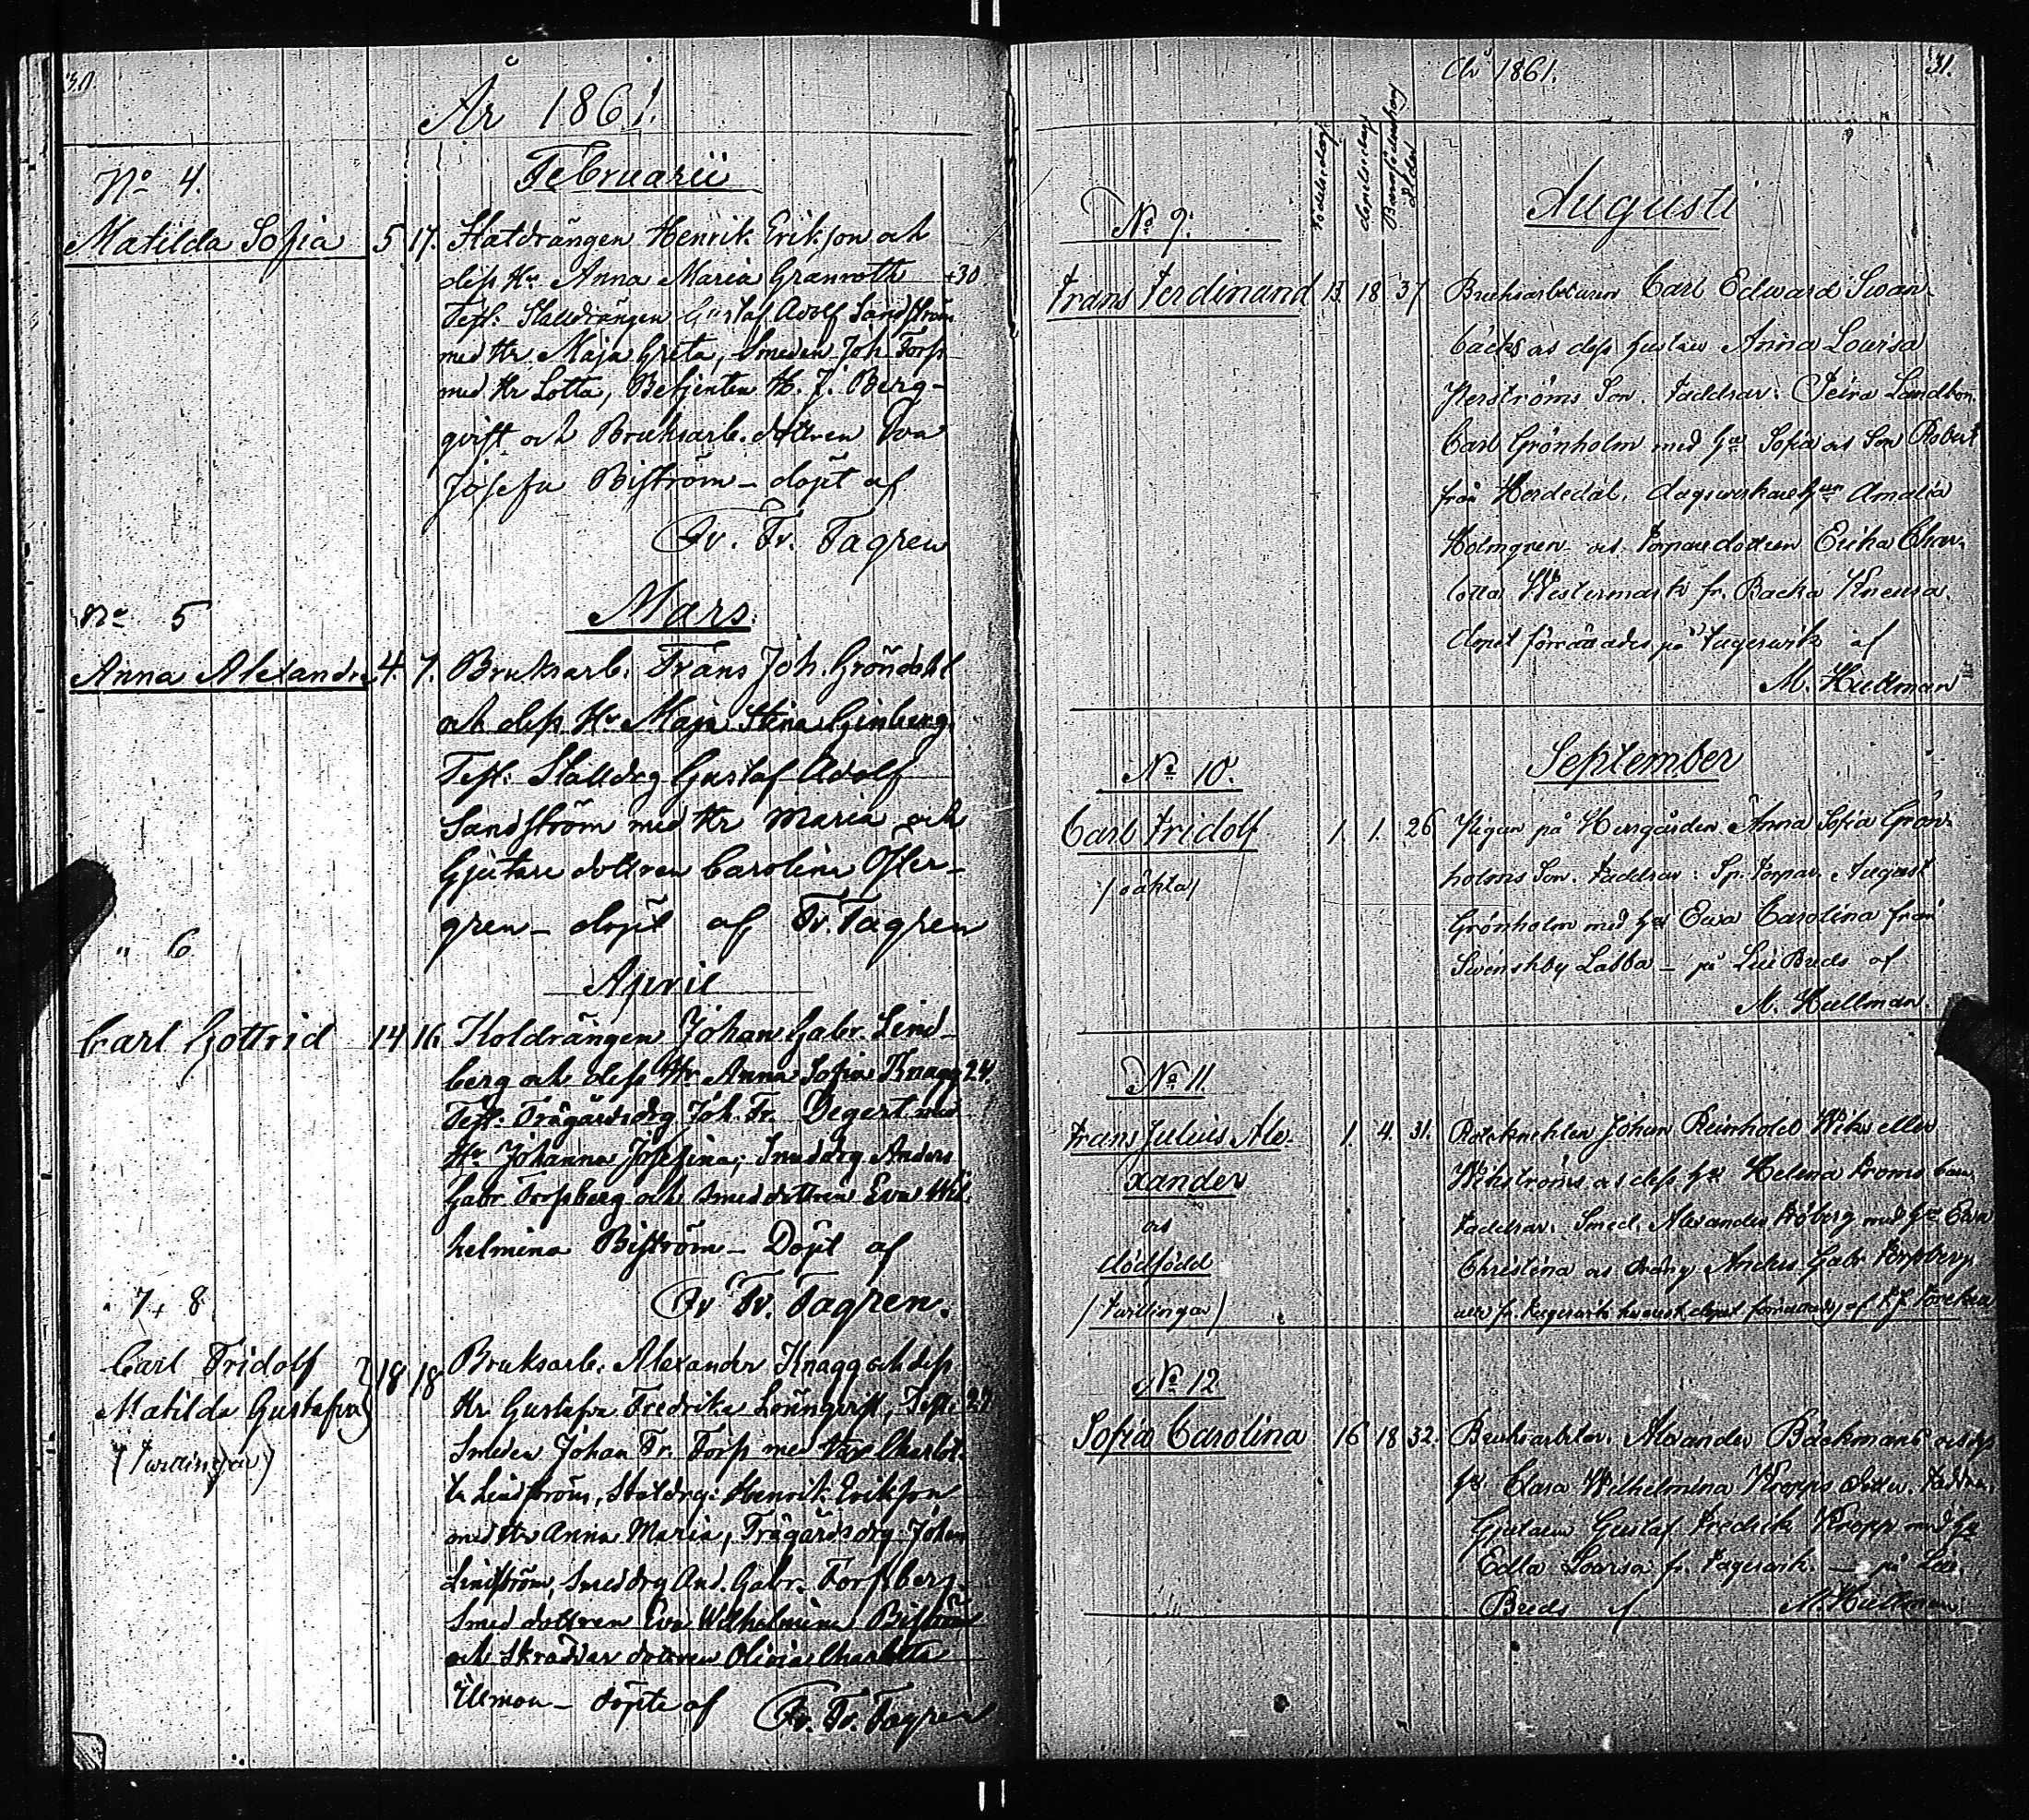 30.
År 1861.
Februarii
No 4.
Matilda Sofia 5 17. Statdrängen Henrik Erikson och
dess Hu Anna Maria Granroth 30
Test: Stalldrängen Gustaf Adolf Sandström
med Hr Maja Greta, Smeden Joh Forss
med Hr Lotta, Betjenten H. J. Berg-
qvist och Bruksarb. dottren Eva
Josefa Biström – döpt af
Fr. Tagren
Mars.
No 5
Anna Alexandra 4. 7. Bruksarb. Frans Joh. Gröndahl
och dess Hu Maja Stina Ginberg.
Test: Stalldrg Gustaf Adolf
Sandström med Hr Maria och
Gjutare dottren Carolina Öster-
gren – döpt af Fr. Tagren
" 6
April
Carl Gottrid 14 16 Koldrängen Johan Gabr. Lind-
berg och dess Hr Anna Sofia Knagg 24.
Test: Trägårdsdrg Joh. Fr. Degert med
Hr Johanna Josefina, Smeddrg Anders
Gabr. Forssberg och Smeddottren Eva Wil-
helmina Biström – Döpt af
Fr. Tagren.
" 7, 8
Carl Fridolf
Matilda Gustafva 18 18 Bruksarb. Alexander Knagg och dess
(Twillingar)
Hr Gustafva Fredrika Lönnqvist, Test: 27
Smeden Johan Fr. Forss med Hr Charlot-
ta Lindström, Statdrg: Henrik Erikson
med Hr Anna Maria, Trägårdsdrg Johan
Lindström, Smeddrg And. Gabr. Forssberg
Smed dottren Eva Wilhelmina Biström
och Skräddar dottren Olivia Charlotta
Ulman – döpte af Fr. Tagren
År 1861.
31.
Födelsedag
Barnsföderskans
ålder
Augusti
No 9.
Frans Ferdinand 13. 18 37 Bruksarbetaren Carl Edward Swan-
bäcks oc dess hustru Anna Lovisa
Herströms Son. Faddrar: Landbon.
Carl Grönholm med Hu Sofia oc Son Robert
från Hordedal, dagsverkare Amalia
Holmgren oc Torparedottren Erika Char-
lotta Westermark fr. Backa
dopet förrättades på Fagervik af
M. Hullman
September
No 10.
Carl Fridolf 1. 1. 26 Pigan på Herrgården Anna Sofia Grön-
/oäkta/
holms Son. Faddrar: Sp. Torpar. August
Grönholm med Hu Ewa Carolina från
Svenskby Labba – på Lill Breds af
M. Hullman.
No 11
Frans Julius Ale- 1. 4. 31. Johan Reinhold Wik eller
xander
Wikströms oc dess Hu Helena Kroms barn
oc
Faddrar: Smed. Alexander Fröberg med Hu Ewa
dödfödd
Christina oc dräng Anders Gabr Forssberg
/Twillingar/
alla fr. Fagervik dopet förrättades af
No 12
Sofia Carolina 16 18 32. Bruksarbetar. Alexander Bäckmans oc dess
Hu Clara Wilhelmina Kropps dotter. Faddrar,
Gjutaren Gustaf Fredrik Kropp med Hu
Edla Lovisa fr. Fagervik. – på Lill
Breds af M. Hullman